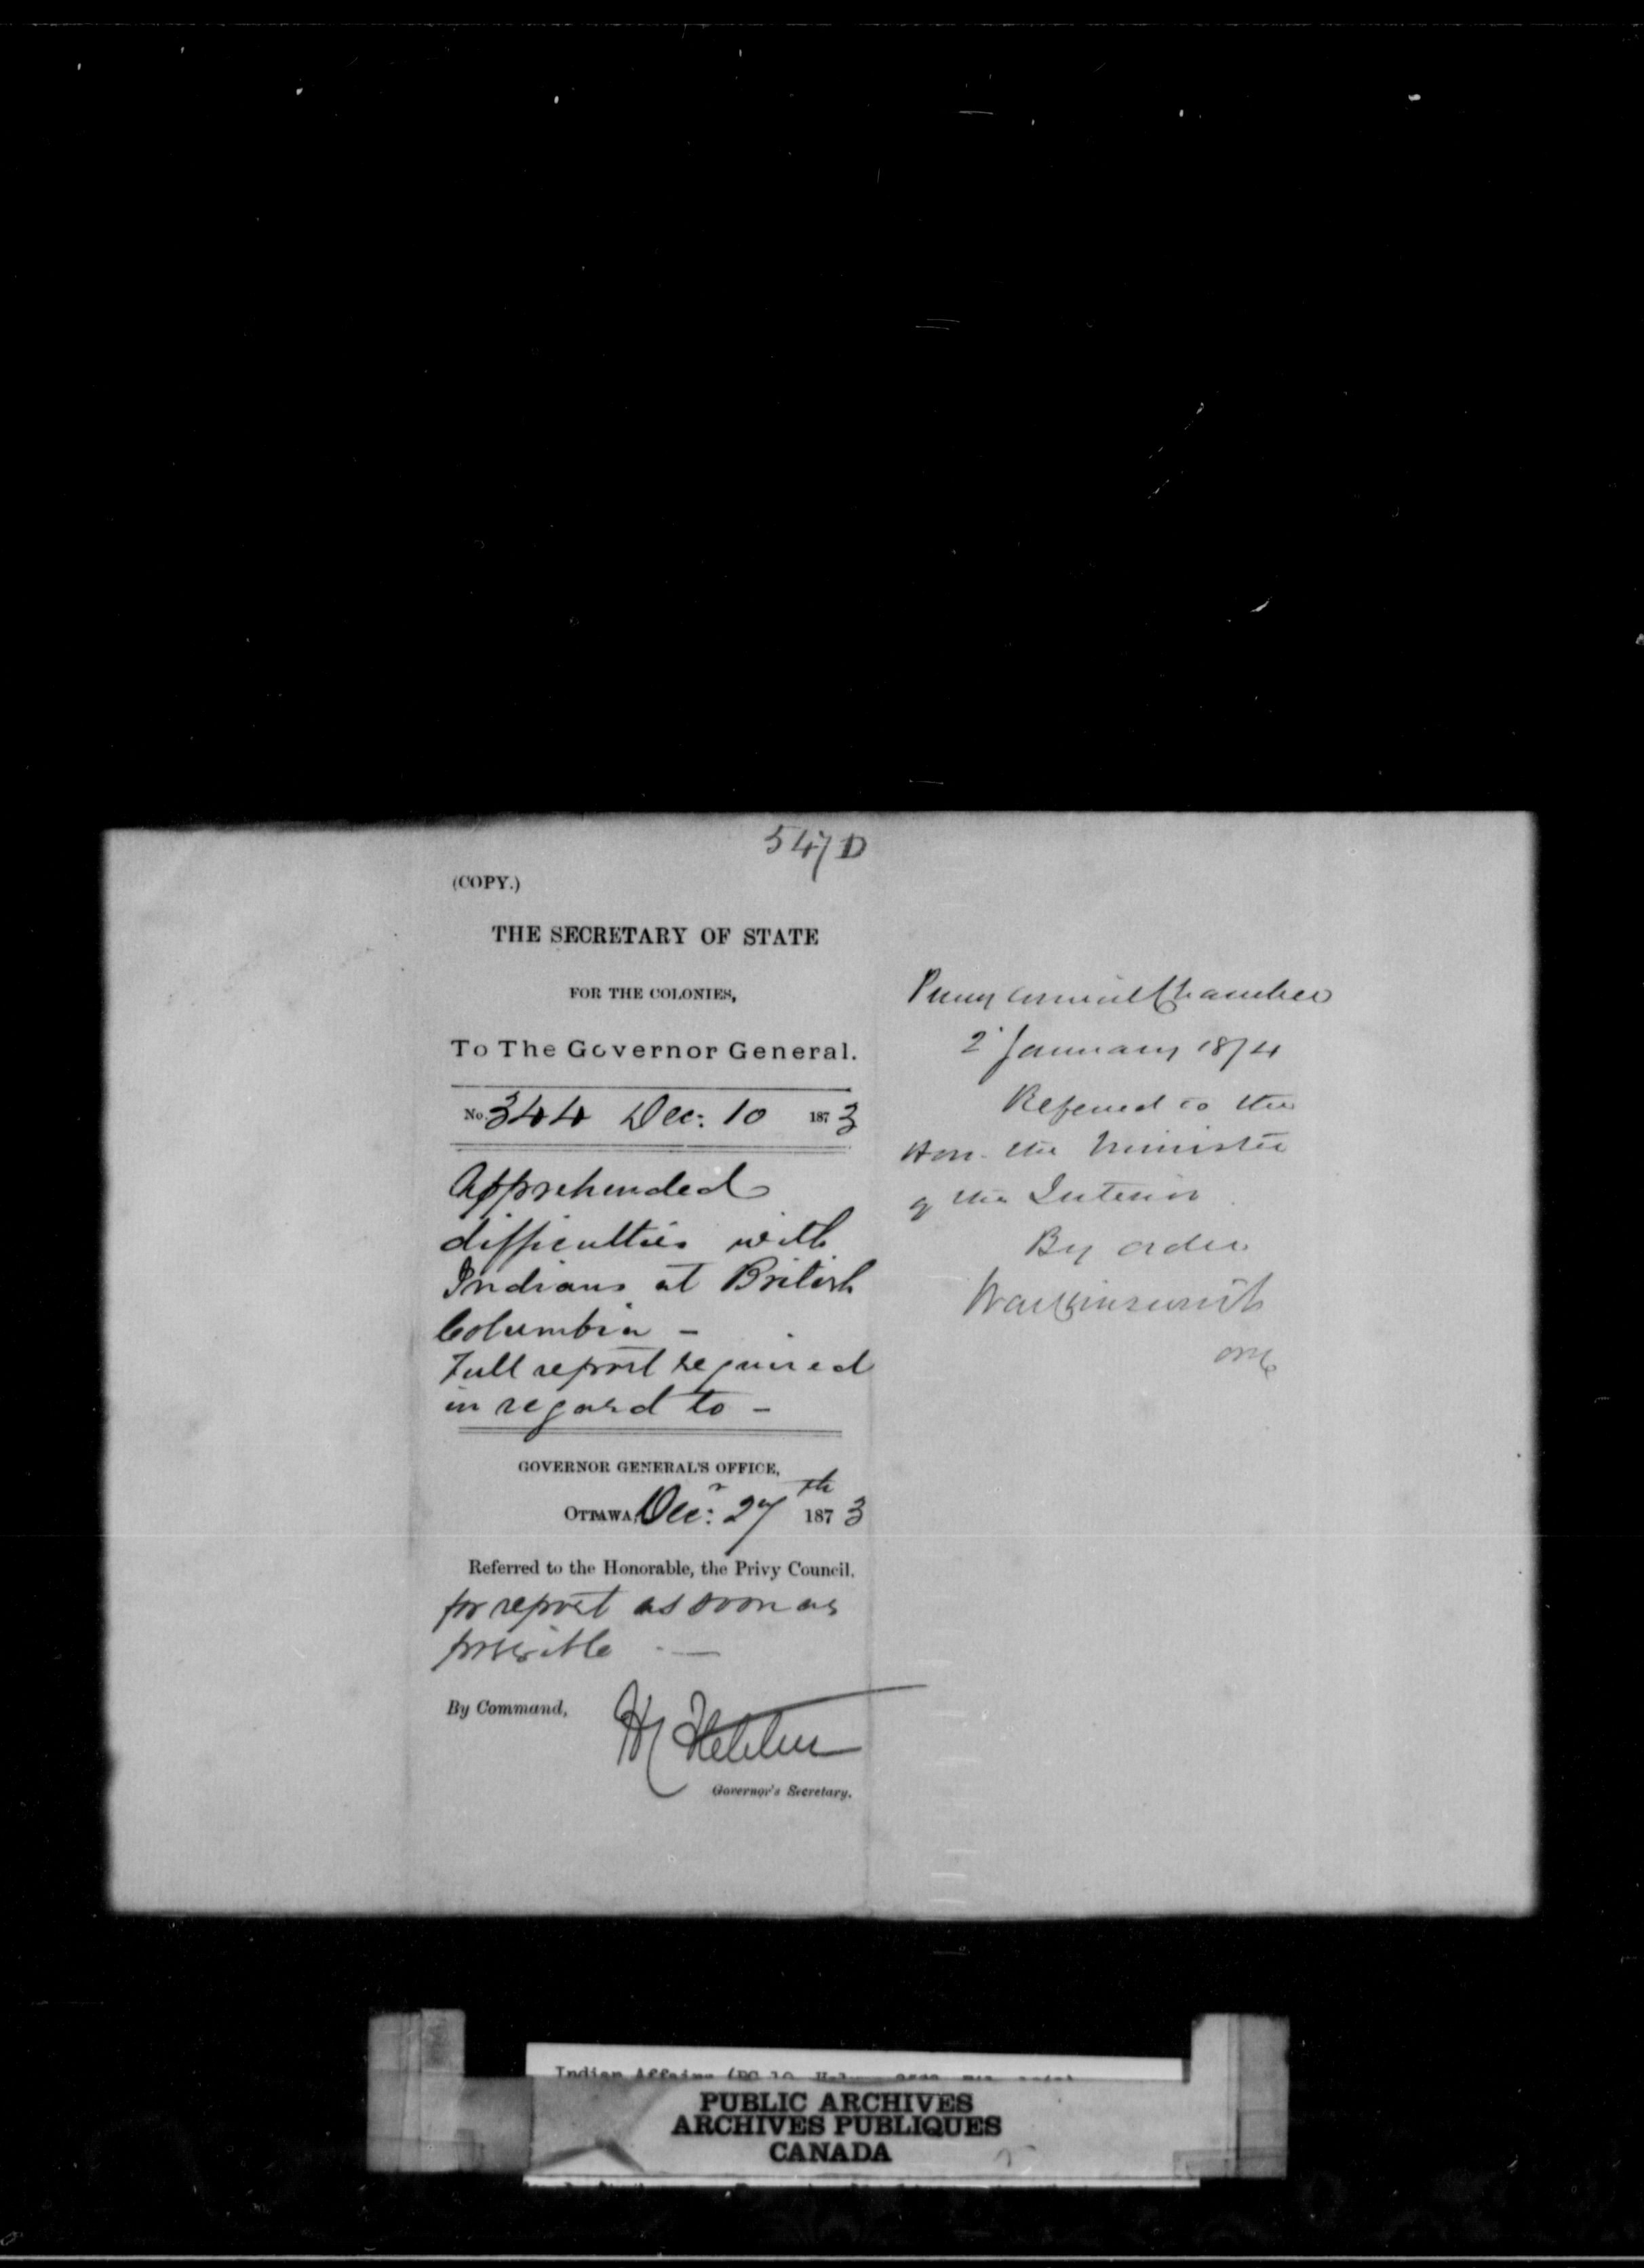 547 D
(COPY.)
THE SECRETARY OF STATE
FOR THE COLONIES,
To The Governor General.
No. 344 Dec: 10 1873
Apprehended
difficulties with
Indians at British
Columbia -
Full report required
in regard to -
GOVERNOR GENERAL'S OFFICE,
OTTAWA, Decr: 27th 1873
Referred to the Honorable, the Privy Council.
for report as soon as
possible. —
By Command,
Governor's Secretary.
Privy Council Chamber
2 January 1874
Referred to the
Hon. the Minister
of the Interior
By order
Indian Affairs (RG 10, Volume
PUBLIC ARCHIVES
ARCHIVES PUBLIQUES
CANADA